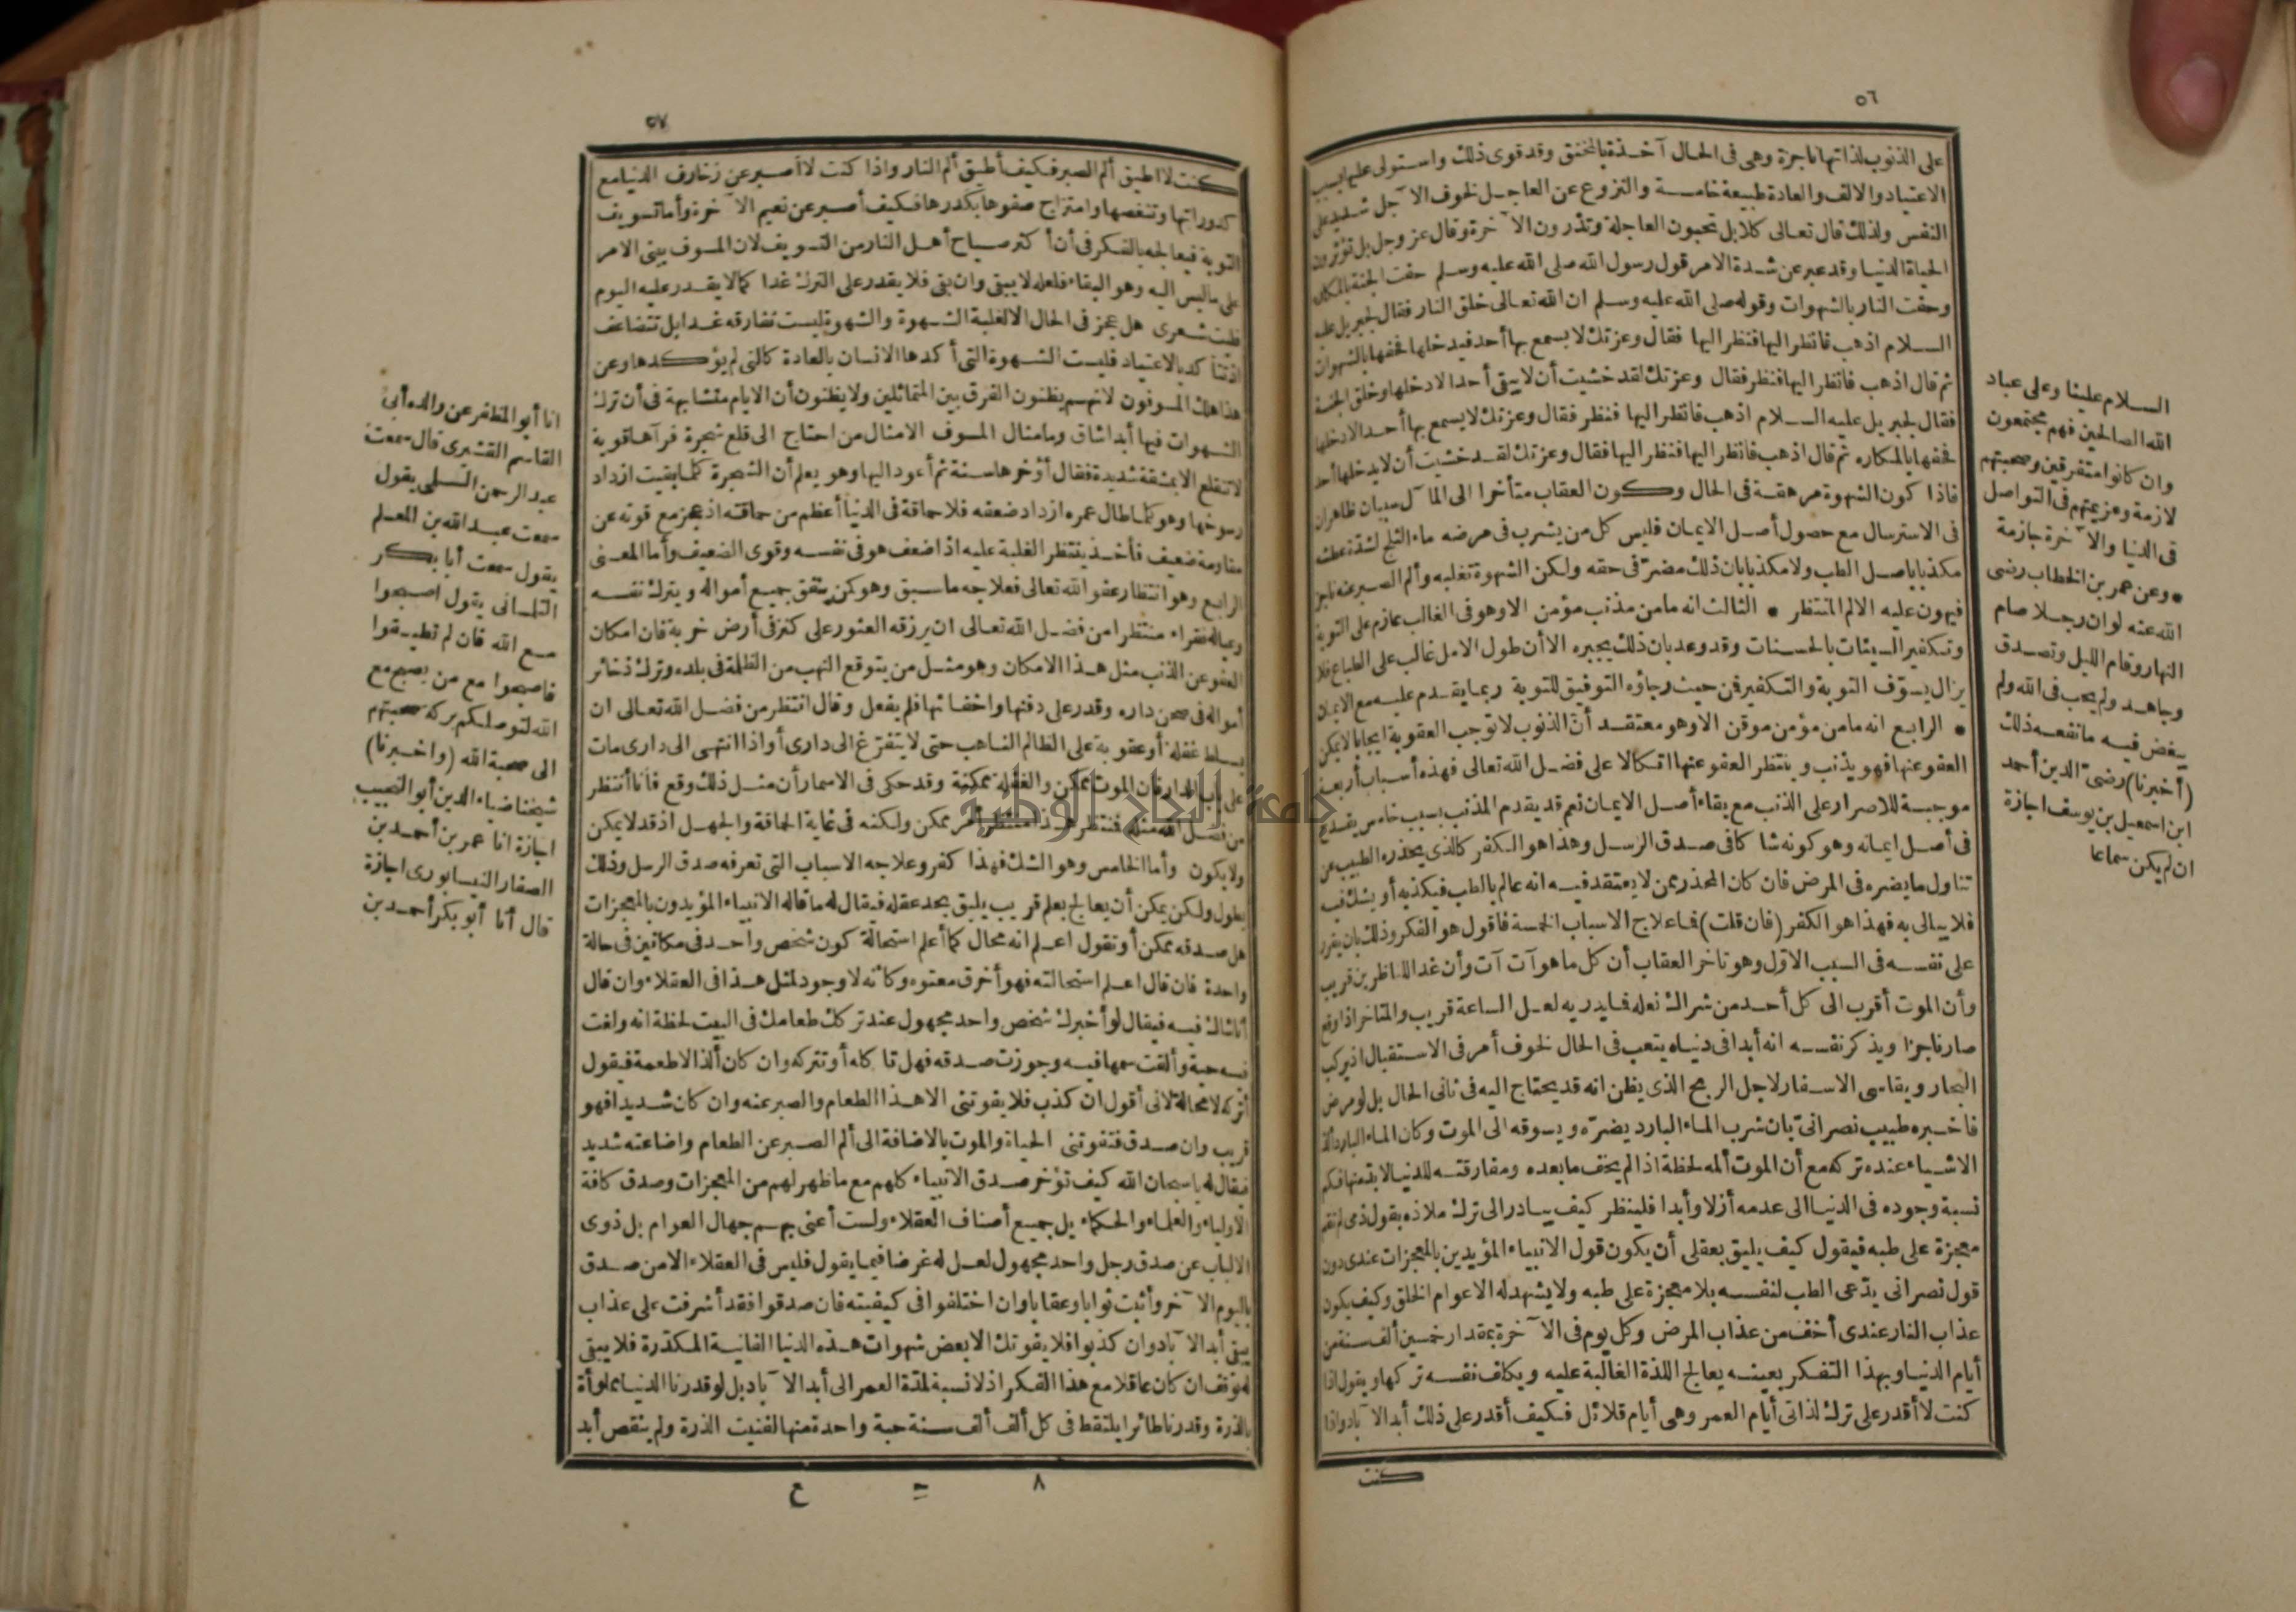 ٥٦
على الذنوب لذاتها ناجزة وهى فى الحال آخذة بالمخنق وقد قوى ذلك واستولى عليها بسبب
الاعتياد والالف والعادة طبيعة خامسة والنزوع عن العاجل لخوف الآجل شديد على
النفس ولذلك قال تعالى كلا بل تحبون العاجلة وتذرون الآخرة وقال عز وجل بل تؤثرون
الحياة الدنيا وقد عبر عن شدة الامر قول رسول الله صلى الله عليه وسلم حفت الجنة بالمكاره
وحفت النار بالشهوات وقوله صلى الله عليه وسلم ان الله تعالى خلق النار فقال لجبريل عليه
السلام اذهب فانظر اليها فنظر اليها فقال وعزتك لا يسمع بها أحد فيدخلها فحفها بالشهوات
ثم قال اذهب فانظر اليها فنظر فقال وعزتك لقد خشيت أن لا يبقى أحد الا دخلها وخلق الجنة
فقال لجبريل عليه السلام اذهب فانظر اليها فنظر فقال وعزتك لا يسمع بها أحد الا دخلها
فحفها بالمكاره ثم قال اذهب فانظر اليها فنظر اليها فقال وعزتك لقد خشيت أن لا يدخلها أحد
فاذا كون الشهوة مرهقة فى الحال وكون العقاب متأخرا الى المآل سببان ظاهران
فى الاسترسال مع حصول أصل الايمان فليس كل من يشرب فى مرضه ماء الثلج لشدة عطشه
مكذبا باصل الطب ولا مكذبا بان ذلك مضر فى حقه ولكن الشهوة تغلبه وألم الصبر عنه ناجز
فيهون عليه الالم المنتظر • الثالث انه ما من مذنب مؤمن الا وهو فى الغالب عازم على التوبة
وتكفير السيئات بالحسنات وقد وعد بان ذلك يجبره الا أن طول الامل غالب على الطباع فلا
يزال يسوّف التوبة والتكفير فمن حيث رجاؤه التوفيق للتوبة ربما يقدم عليه مع الايمان
• الرابع انه ما من مؤمن موقن الا وهو معتقد أن الذنوب لا توجب العقوبة ايجابا لا يمكن
العفو عنها فهو يذنب وينتظر العفو عنها اتكالا على فضل الله تعالى فهذه أسباب أربعة
موجبة للاصرار على الذنب مع بقاء أصل الايمان نعم قد يقدم المذنب بسبب خامس يقدح
فى أصل ايمانه وهو كونه شاكا فى صدق الرسل وهذا هو الكفر كالذى يحذره الطبيب عن
تناول ما يضره فى المرض فان كان المحذر ممن لا يعتقد فيه انه عالم بالطب فيكذبه أو يشك فيه
فلا يبالى به فهذا هو الكفر (فان قلت) فما علاج الاسباب الخمسة فاقول هو الفكر وذلك بان يقرر
على نفسه فى السبب الاوّل وهو تأخر العقاب أن كل ما هو آت آت وأن غدا للناظرين قريب
وأن الموت أقرب الى كل أحد من شراك نعله فما يدريه لعل الساعة قريب والمتاخر اذا وقع
صار ناجزا ويذكر نفسه انه أبدا فى دنياه يتعب فى الحال لخوف أمر فى الاستقبال اذ يركب
البحار ويقاسى الاسفار لاجل الربح الذى يظن انه قد يحتاج اليه فى ثانى الحال بل لو مرض
فاخبره طبيب نصرانىّ بان شرب الماء البارد يضرّه ويسوقه الى الموت وكان الماء البارد ألذ
الاشياء عنده تركه مع أن الموت ألمه لحظة اذا لم يخف ما بعده ومفارقته للدنيا لا بد منها فكم
نسبة وجوده فى الدنيا الى عدمه أزلا وأبدا فلينظر كيف يبادر الى ترك ملاذه بقول ذمى لم تقم
معجزة على طبه فيقول كيف يليق بعقلى أن يكون قول الانبياء المؤيدين بالمعجزات عندى دون
قول نصرانى يدّعى الطب لنفسه بلا معجزة على طبه ولا يشهد له الا عوام الخلق وكيف يكون
عذاب النار عندى أخف من عذاب المرض وكل يوم فى الآخرة بمقدار خمسين ألف سنة من
أيام الدنيا وبهذا التفكر بعينه يعالج اللذة الغالبة عليه ويكلف نفسه تركها ويقول اذا
كنت لا أقدر على ترك لذاتى أيام العمر وهى أيام قلائل فكيف أقدر على ذلك أبد الآباد واذا
كنت
السلام علينا وعلى عباد
الله الصالحين فهم مجتمعون
وان كانوا متفرقين وصحبتهم
لازمة وعزيمتهم فى التواصل
فى الدنيا والآخرة جازمة
• وعن عمر بن الخطاب رضى
الله عنه لو ان رجلا صام
النهار وقام الليل وتصدق
وجاهد ولم يحب فى الله ولم
يبغض فيه ما نفعه ذلك
(أخبرنا) رضى الدين أحمد
ابن اسمعيل بن يوسف اجازة
ان لم يكن سماعا
٥٧
كنت لا اطيق ألم الصبر فكيف أطيق ألم النار واذا كنت لا أصبر عن زخارف الدنيا مع
كدوراتها وتنغصها وامتزاج صفوها بكدرها فكيف أصبر عن نعيم الآخرة وأما تسويف
التوبة فيعالجه بالفكر فى أن أكثر صياح أهل النار من التسويف لان المسوف يبنى الامر
على ما ليس اليه وهو البقاء فلعله لا يبقى وان بقى فلا يقدر على الترك غدا كما لا يقدر عليه اليوم
فليت شعرى هل عجز فى الحال الا لغلبة الشهوة والشهوة ليست تفارقه غدا بل تتضاعف
اذ تتأكد بالاعتياد فليست الشهوة التى أكدها الانسان بالعادة كالتى لم يؤكدها وعن
هذا هلك المسوفون لانهم يظنون الفرق بين المتماثلين ولا يظنون أن الايام متشابهة فى أن ترك
الشهوات فيها أبدا شاق وما مثال المسوف الا مثال من احتاج الى قلع شجرة فرآها قوية
لا تنقلع الا بمشقة شديدة فقال أؤخرها سنة ثم أعود اليها وهو يعلم أن الشجرة كلما بقيت ازداد
رسوخها وهو كلما طال عمره ازداد ضعفه فلا حماقة فى الدنيا أعظم من حماقته اذ عجز مع قوته عن
مقاومة ضعيف فأخذ ينتظر الغلبة عليه اذا ضعف هو فى نفسه وقوى الضعيف وأما المعنى
الرابع وهو انتظار عفو الله تعالى فعلاجه ما سبق وهو كمن ينفق جميع أمواله ويترك نفسه
وعياله فقراء منتظرا من فضل الله تعالى ان يرزقه العثور على كنز فى أرض خربة فان امكان
العفو عن الذنب مثل هذا الامكان وهو مثل من يتوقع النهب من الظلمة فى بلده وترك ذخائر
أمواله فى صحن داره وقدر على دفنها واخفائها فلم يفعل وقال انتظر من فضل الله تعالى ان
يسلط غفلة أو عقوبة على الظالم الناهب حتى لا يتفرّغ الى دارى أو اذا انتهى الى دارى مات
على باب الدار فان الموت ممكن والغفلة ممكنة وقد حكى فى الاسمار أن مثل ذلك وقع فانا أنتظر
من فضل الله مثله فمنتظر هذا منتظر أمر ممكن ولكنه فى غاية الحماقة والجهل اذ قد لا يمكن
ولا يكون وأما الخامس وهو الشك فهذا كفر وعلاجه الاسباب التى تعرفه صدق الرسل وذلك
يطول ولكن يمكن أن يعالج بعلم قريب يليق بحد عقله فيقال له ما قاله الانبياء المؤيدون بالمعجزات
هل صدقه ممكن أو تقول اعلم انه محال كما أعلم استحالة كون شخص واحد فى مكانين فى حالة
واحدة فان قال اعلم استحالته فهو أخرق معتوه وكأنه لا وجود لمثل هذا فى العقلاء وان قال
أنا شاك فيه فيقال لو أخبرك شخص واحد مجهول عند تركك طعامك فى البيت لحظة انه ولغت
فيه حية وألقت سمها فيه وجوزت صدقه فهل تاكله أو تتركه وان كان ألذ الاطعمة فيقول
أتركه لا محالة لانى أقول ان كذب فلا يفوتنى الا هذا الطعام والصبر عنه وان كان شديدا فهو
قريب وان صدق فتفوتنى الحياة والموت بالاضافة الى ألم الصبر عن الطعام واضاعته شديد
فيقال له يا سبحان الله كيف تؤخر صدق الانبياء كلهم مع ما ظهر لهم من المعجزات وصدق كافة
الاولياء والعلماء والحكماء بل جميع أصناف العقلاء ولست أعنى بهم جهال العوام بل ذوى
الالباب عن صدق رجل واحد مجهول لعل له غرضا فيما يقول فليس فى العقلاء الا من صدق
باليوم الآخر وأثبت ثوابا وعقابا وان اختلفوا فى كيفيته فان صدقوا فقد أشرفت على عذاب
يبقى أبد الآباد وان كذبوا فلا يفوتك الا بعض شهوات هذه الدنيا الفانية المكدّرة فلا يبقى
له توقف ان كان عاقلا مع هذا الفكر اذ لا نسبة لمدّة العمر الى أبد الآباد بل لو قدرنا الدنيا مملوأة
بالذرة وقدرنا طائرا يلتقط فى كل ألف ألف سنة حبة واحدة منها لفنيت الذرة ولم ينقص أبد
٨
ع
انا أبو المظفر عن والده أبى
القاسم القشيرى قال سمعت
عبد الرحمن السلمى يقول
سمعت عبد الله بن المعلم
يقول سمعت أبا بكر
التلمسانى يقول اصحبوا
مع الله فان لم تطيقوا
فاصحبوا مع من يصحب مع
الله لتوصلكم بركة صحبتهم
الى صحبة الله (واخبرنا)
شيخنا ضياء الدين أبو النجيب
اجازة انا عمر بن أحمد بن
الصفار النيسابورى اجازة
قال أنا أبو بكر أحمد بن
جامعة الحاج الوطنية